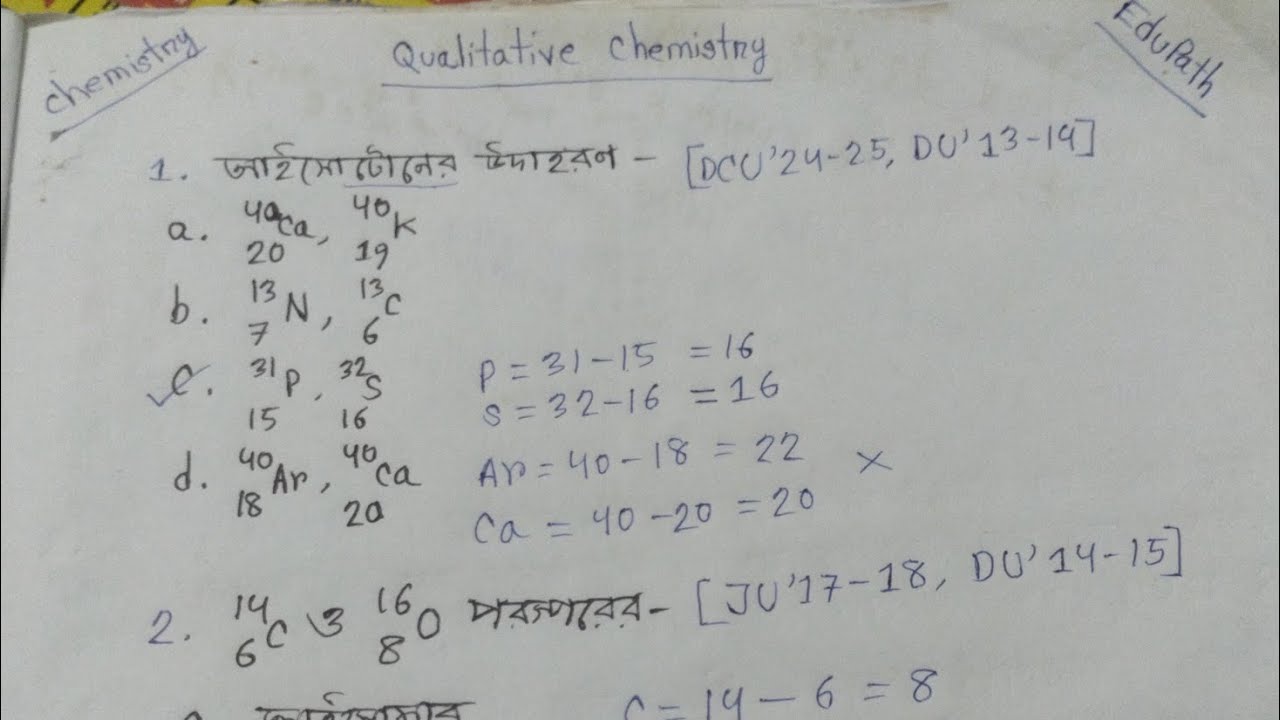 Chemistry
Qualitative Chemistry
EduPath
1. আইসোটোনের উদাহরণ – [DCU'24-25, DU'13-14]
a. ⁴⁰₂₀Ca, ⁴⁰₁₉K
b. ¹³₇N, ¹³₆C
c. ³¹₁₅P, ³²₁₆S
P = 31-15 = 16
S = 32-16 = 16
d. ⁴⁰₁₈Ar, ⁴⁰₂₀Ca
Ar = 40-18 = 22 ×
Ca = 40-20 = 20
2. ¹⁴₆C ও ¹⁶₈O পরস্পরের- [JU'17-18, DU'14-15]
C = 14 - 6 = 8